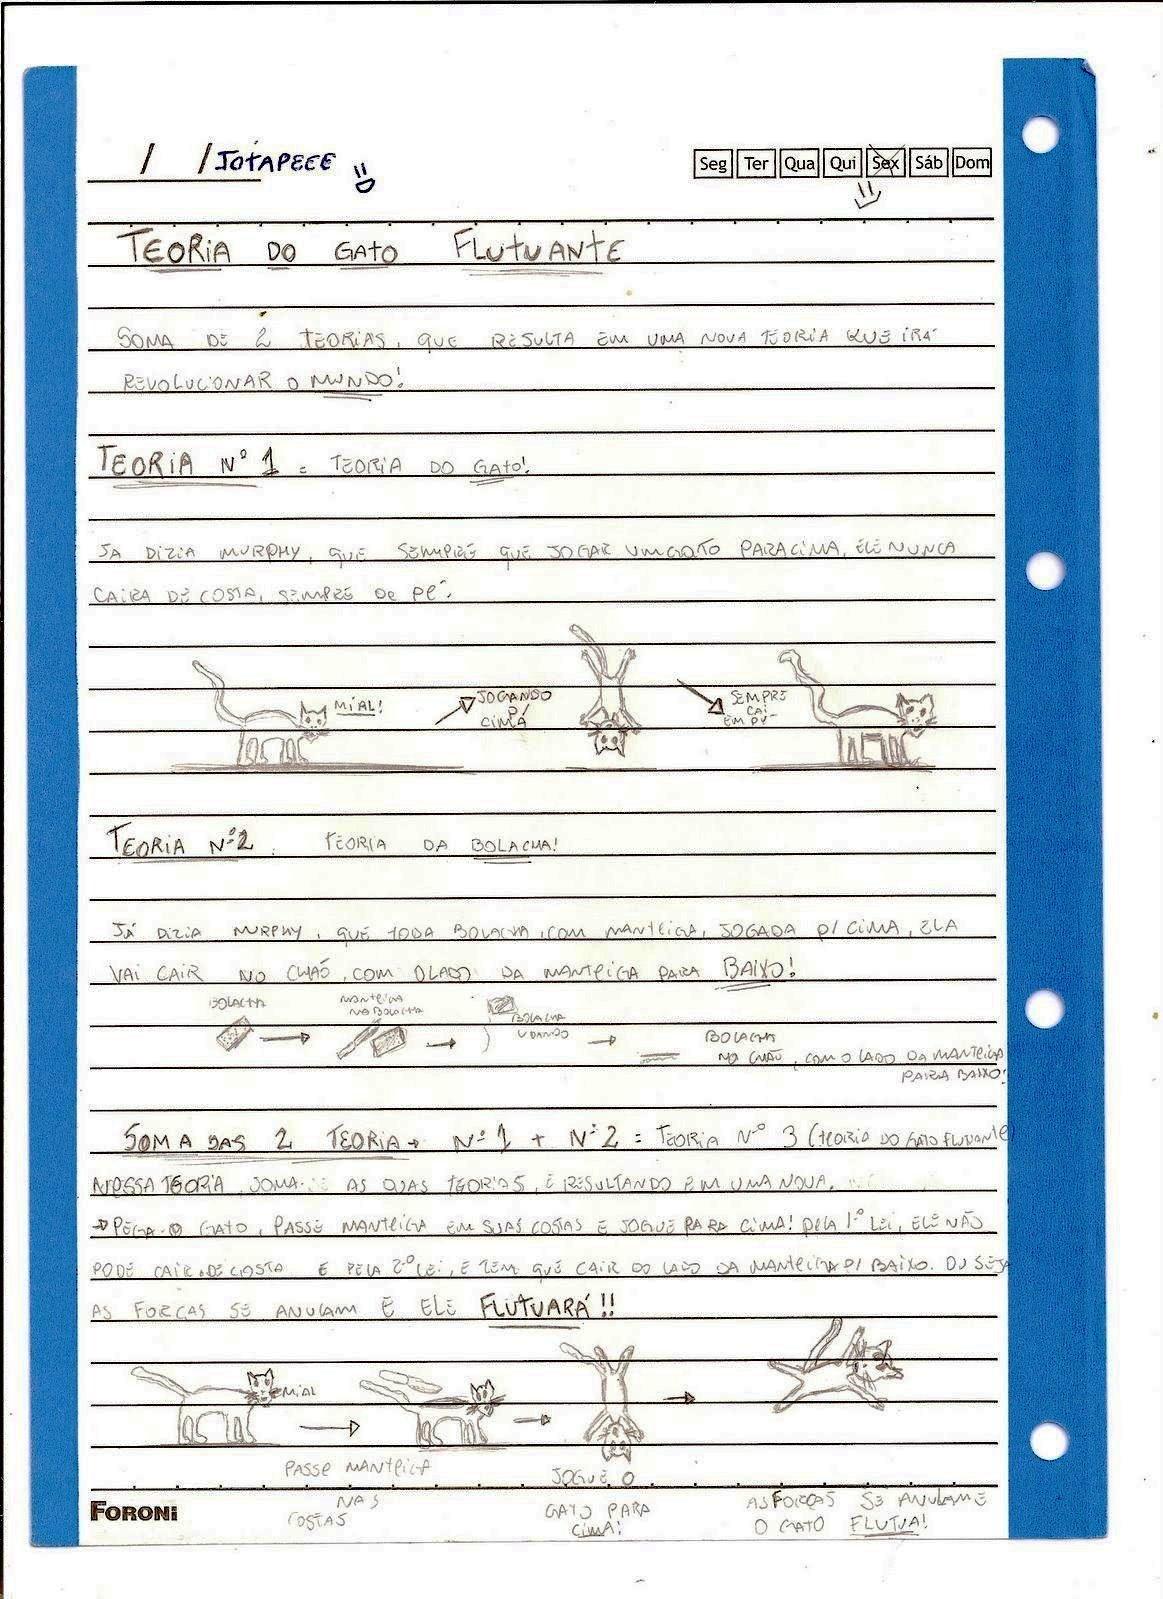 / /JOTAPECE
Seg Ter Qua Qui Sex Sáb Dom
TEORIA DO GATO FLUTUANTE
SOMA DE 2 TEORIAS, QUE RESULTA EM UMA NOVA TEORIA QUE IRÁ
REVOLUCIONAR O MUNDO!
TEORIA Nº 1 = TEORIA DO GATO!
JA DIZIA MURPHY, QUE SEMPRE QUE JOGAR UM GATO PARA CIMA, ELE NUNCA
CAIRA DE COSTA, SEMPRE DE PÉ.
MIAL!
JOGANDO
P/
CIMA
SEMPRE
CAI
EM PÉ
TEORIA Nº 2 TEORIA DA BOLACHA!
JÁ DIZIA MURPHY, QUE TODA BOLACHA, COM MANTEIGA, JOGADA P/ CIMA, ELA
VAI CAIR NO CHÃO, COM O LADO DA MANTEIGA PARA BAIXO!
BOLACHA
MANTEIGA
NA BOLACHA
BOLACHA
VOANDO
BOLACHA
NO CHÃO, COM O LADO DA MANTEIGA
PARA BAIXO!
SOMA DAS 2 TEORIA → Nº 1 + Nº 2 = TEORIA Nº 3 (TEORIA DO GATO FLUTUANTE)
NESSA TEORIA, SOMA-SE AS DUAS TEORIAS, E RESULTANDO EM UMA NOVA.
→ PEGA O GATO, PASSE MANTEIGA EM SUAS COSTAS E JOGUE PARA CIMA! PELA 1º LEI, ELE NÃO
PODE CAIR DE COSTA E PELA 2º LEI, E TEM QUE CAIR DO LADO DA MANTEIGA P/ BAIXO. OU SEJA
AS FORÇAS SE ANULAM E ELE FLUTUARÁ!!
MIAL
PASSE MANTEIGA
NAS
COSTAS
JOGUE O
GATO PARA
CIMA!
AS FORÇAS SE ANULAM E
O GATO FLUTUA!
FORONI